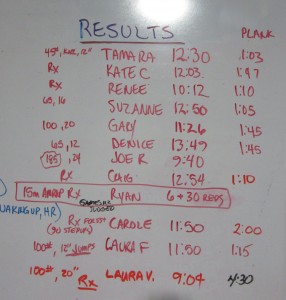 RESULTS PLANK
45#, 12" TAMARA 12:30 1:03
Rx KATE C 12:03 1:47
Rx RENEE 10:12 1:10
65, 16 SUZANNE 12:50 1:05
100, 20 GARY 11:26 1:45
65, 12 DENICE 13:49 1:45
185, 24 JOE R 9:40
Rx CRAIG 12:54 1:10
15m AMRAP Rx RYAN 6+30 REPS
WAKEUP, HR)
Rx CAROLE 11:50 2:00
(90 STEPUPS)
100#, 12" JUMPS LAURA F 11:50 1:15
100#, 20" Rx LAURA V. 9:04 4:30